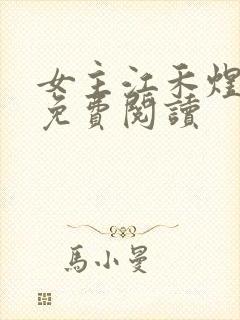 女主江禾煌
免費閱讀
馬小曼